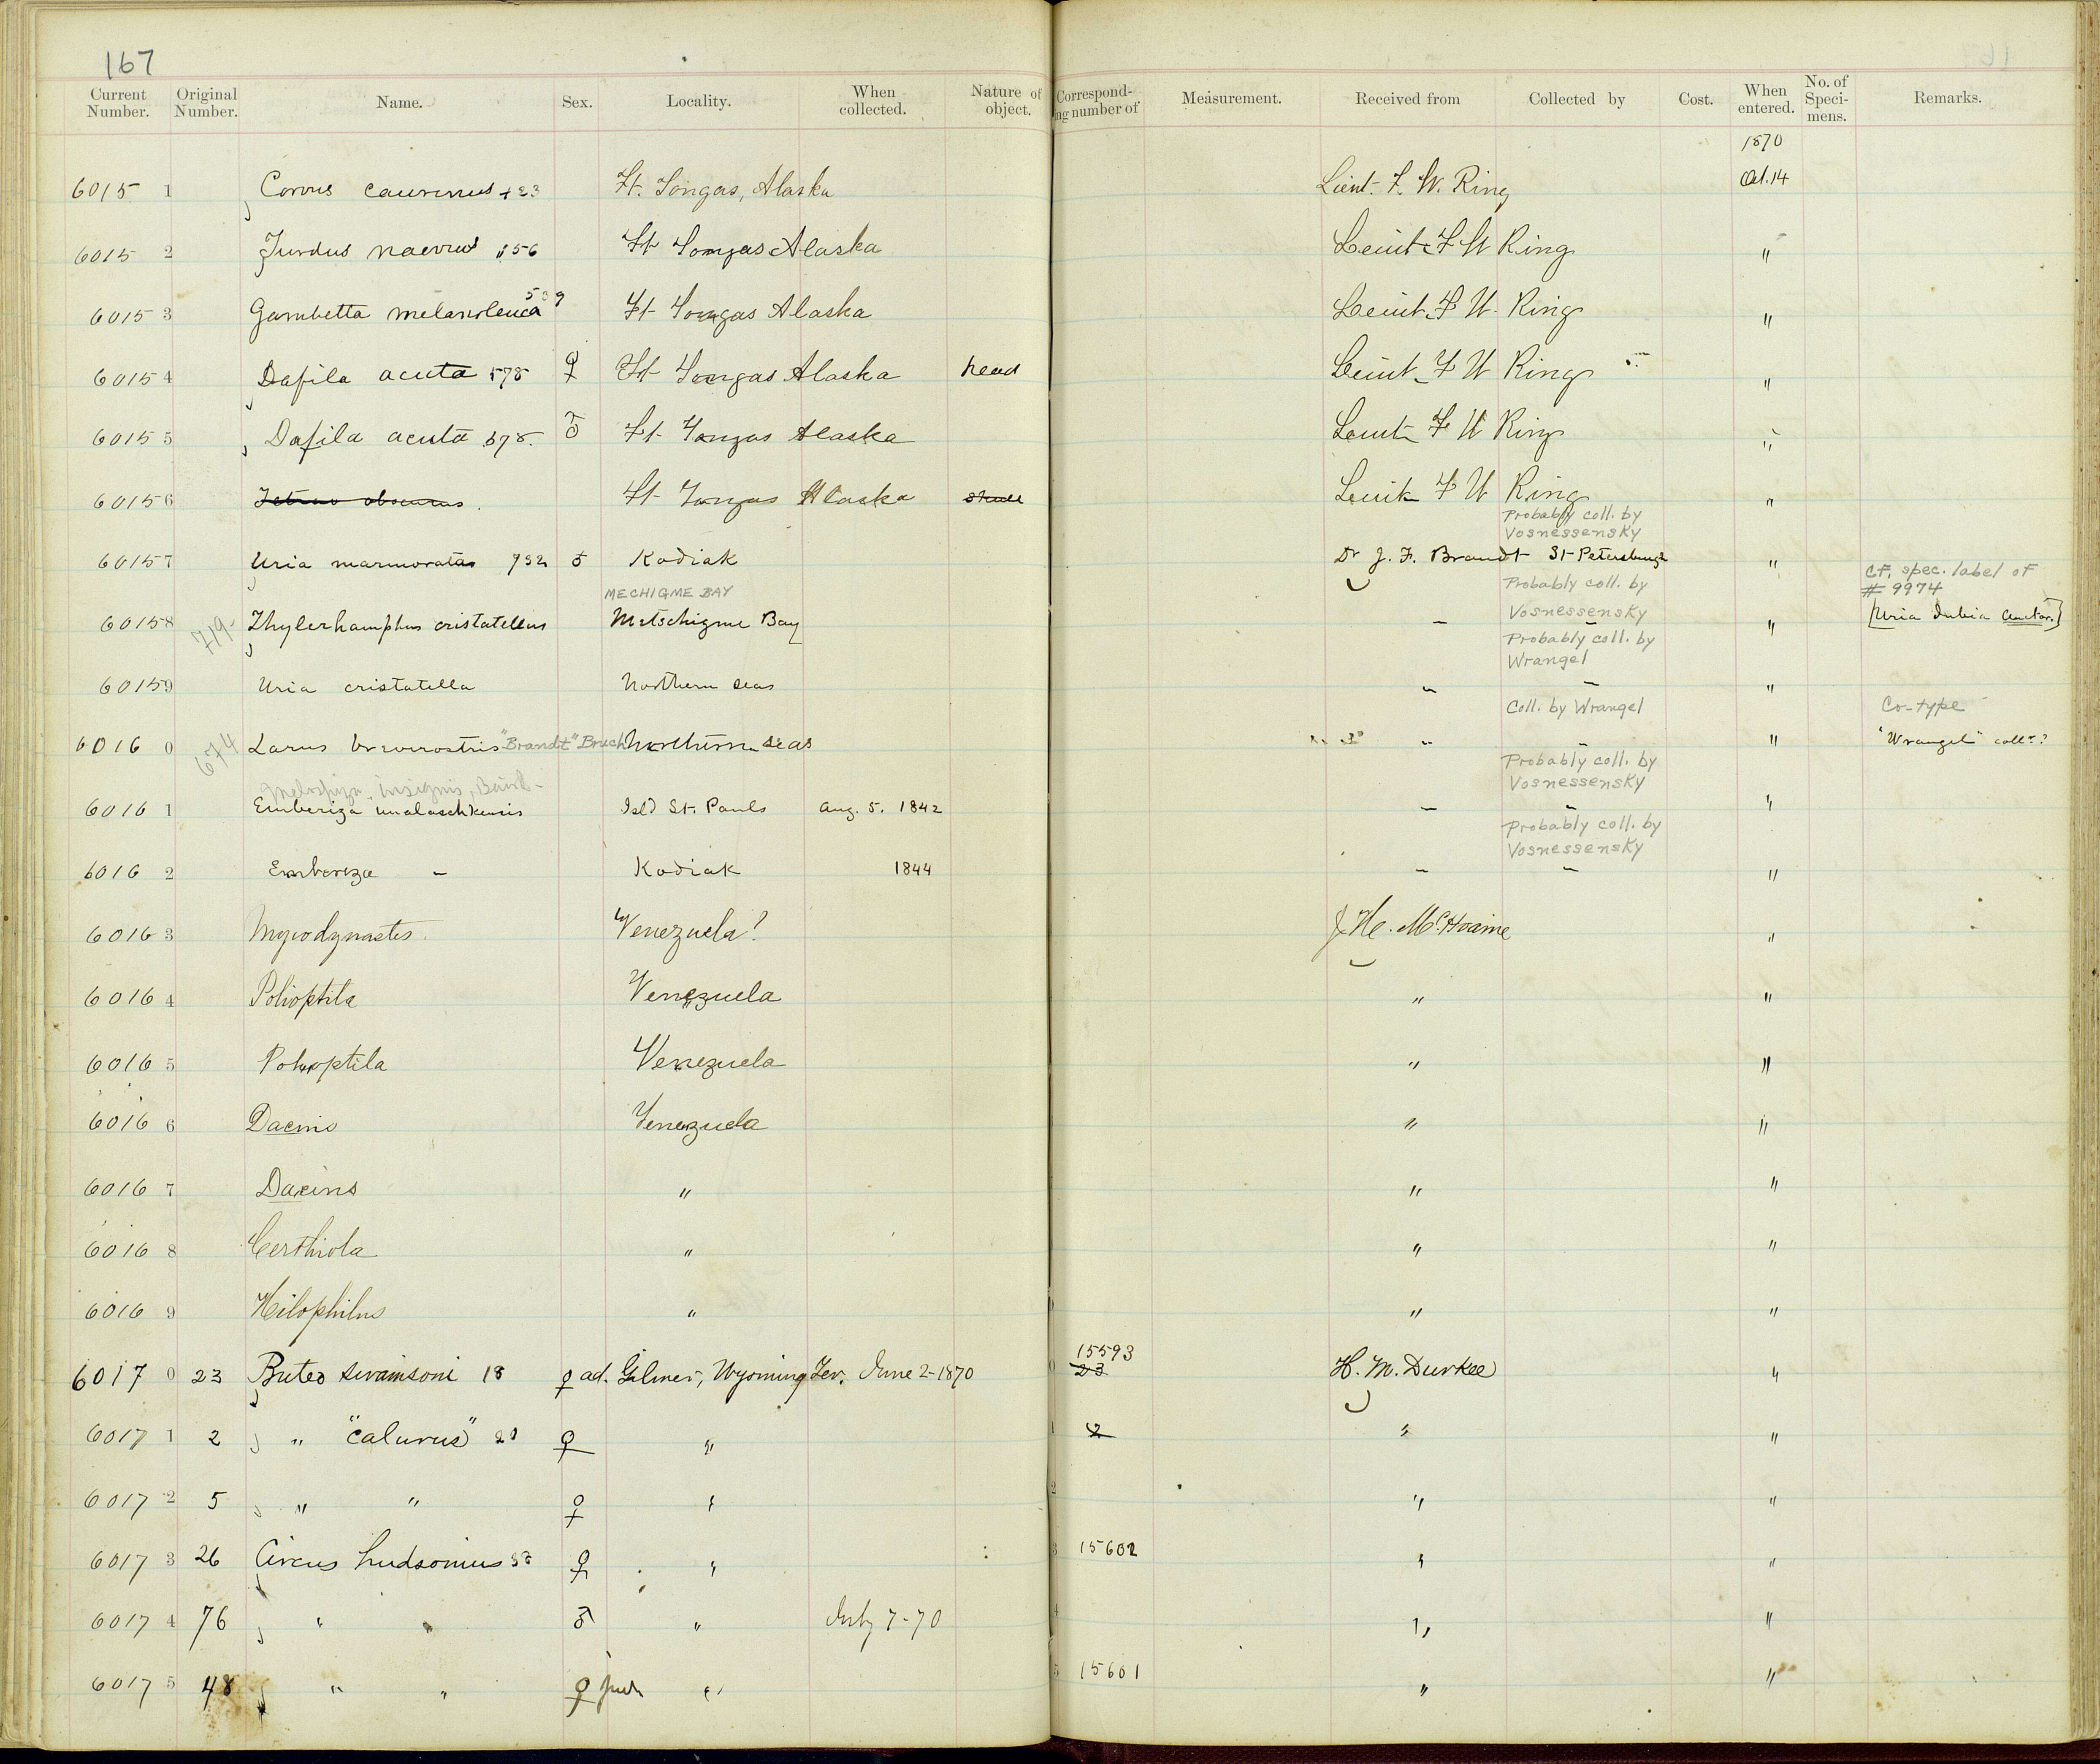 167
Current Number. Original Number. Name. Sex. Locality. When collected. Nature of object. Correspond- ing number of Measurement. Received from Collected by Cost. When entered. No. of Speci- mens. Remarks.
1870
60151 Corvus caurinus 423 Ft. Tongas, Alaska Lieut. F. W. Ring Oct. 14
60152 Turdus naevius 156 Ft Tongas Alaska Leiut F W Ring "
60153 Gambetta melanoleuca 539 Ft Tongas Alaska Leiut F W Ring "
60154 Dafila acuta 578 ♀ Ft Tongas Alaska head Leiut F W Ring "
60155 Dafila acuta 578. ♂ Ft Tongas Alaska Leiut F W Ring "
60156 Tetrao obscurus. Ft Tongas Alaska skull Leiut F W Ring "
Probably coll. by
Vosnessensky
60157 Uria marmorata 732 ♂ Kodiak Dr J. F. Brandt St Petersburgh "
MECHIGME BAY Probably coll. by Cf. spec. label of
Vosnessensky # 9974
60158 719- Thylerhamphus cristatellus Metschigme Bay - - " [Uria dubia auctor.]
Probably coll. by
Wrangel
60159 Uria cristatella Northern seas - - "
Coll. by Wrangel Co-type
60160 674 Larus brevirostris "Brandt" Bruch Northern seas - - " "Wrangel" collr.?
Probably coll. by
Melospiza insignis, Baird- Vosnessensky
60161 Emberiza unalaschkensis Isld St. Pauls Aug. 5. 1842 - - "
Probably coll. by
Vosnessensky
60162 Emberiza - Kodiak 1844 - - "
60163 Myiodynastes. Venezuela? "
60164 Polioptila Venezuela " "
60165 Polioptila Venezuela " "
60166 Dacnis Venezuela " "
60167 Dacnis " " "
60168 Certhiola " " "
60169 Hilophilus " " "
60170 23 Buteo swainsoni 18 ♀ ad. Gilmer, Wyoming Ter. June 2-1870 15593 23 H. M. Durkee "
60171 2 " "calurus" 20 ♀ " 2 " "
60172 5 " " ♀ " " "
60173 26 Circus hudsonius 38 ♀ " 15602 " "
60174 76 " " ♂ " July 7-70 " "
60175 48 " " ♀ juv " 15601 " "